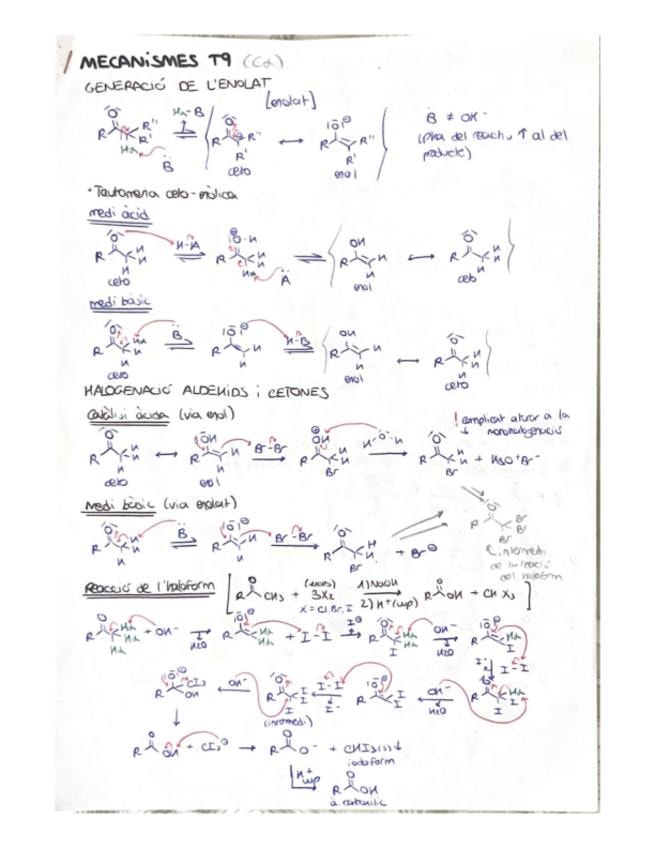 MECANISMES T9 (Cα)
GENERACIÓ DE L'ENOLAT
[enolat]
Hα-B
B ≠ OH⁻
(pKa del reactiu ↑ al del producte)
ceto
enol
• Tautomeria ceto-enòlica
medi àcid
H-A
ceto
enol
ceto
medi bàsic
H-B
ceto
enol
ceto
HALOGENACIÓ ALDEHIDS i CETONES
Catàlisi àcida (via enol)
! complicat aturar a la monohalogenació
Br-Br
+ H3O⁺Br⁻
ceto
enol
Medi bàsic (via enolat)
Br-Br
+ Br⊖
intermedi de la reacció del haloform
Reacció de l'haloform
CH3 + 3X2
(excés)
X = Cl, Br, I
1) NaOH
2) H⁺ (wp)
OH + CH X3
+ OH⁻
H2O
+ I-I
I⊖
OH⁻
H2O
I-I
CI3
OH
OH⁻
I-I
I⁻
OH⁻
H2O
(intermedi)
OH + CI3⊖
O⁻ + CHI3(s)↓
iodoform
H⁺
wp
à. carboxílic